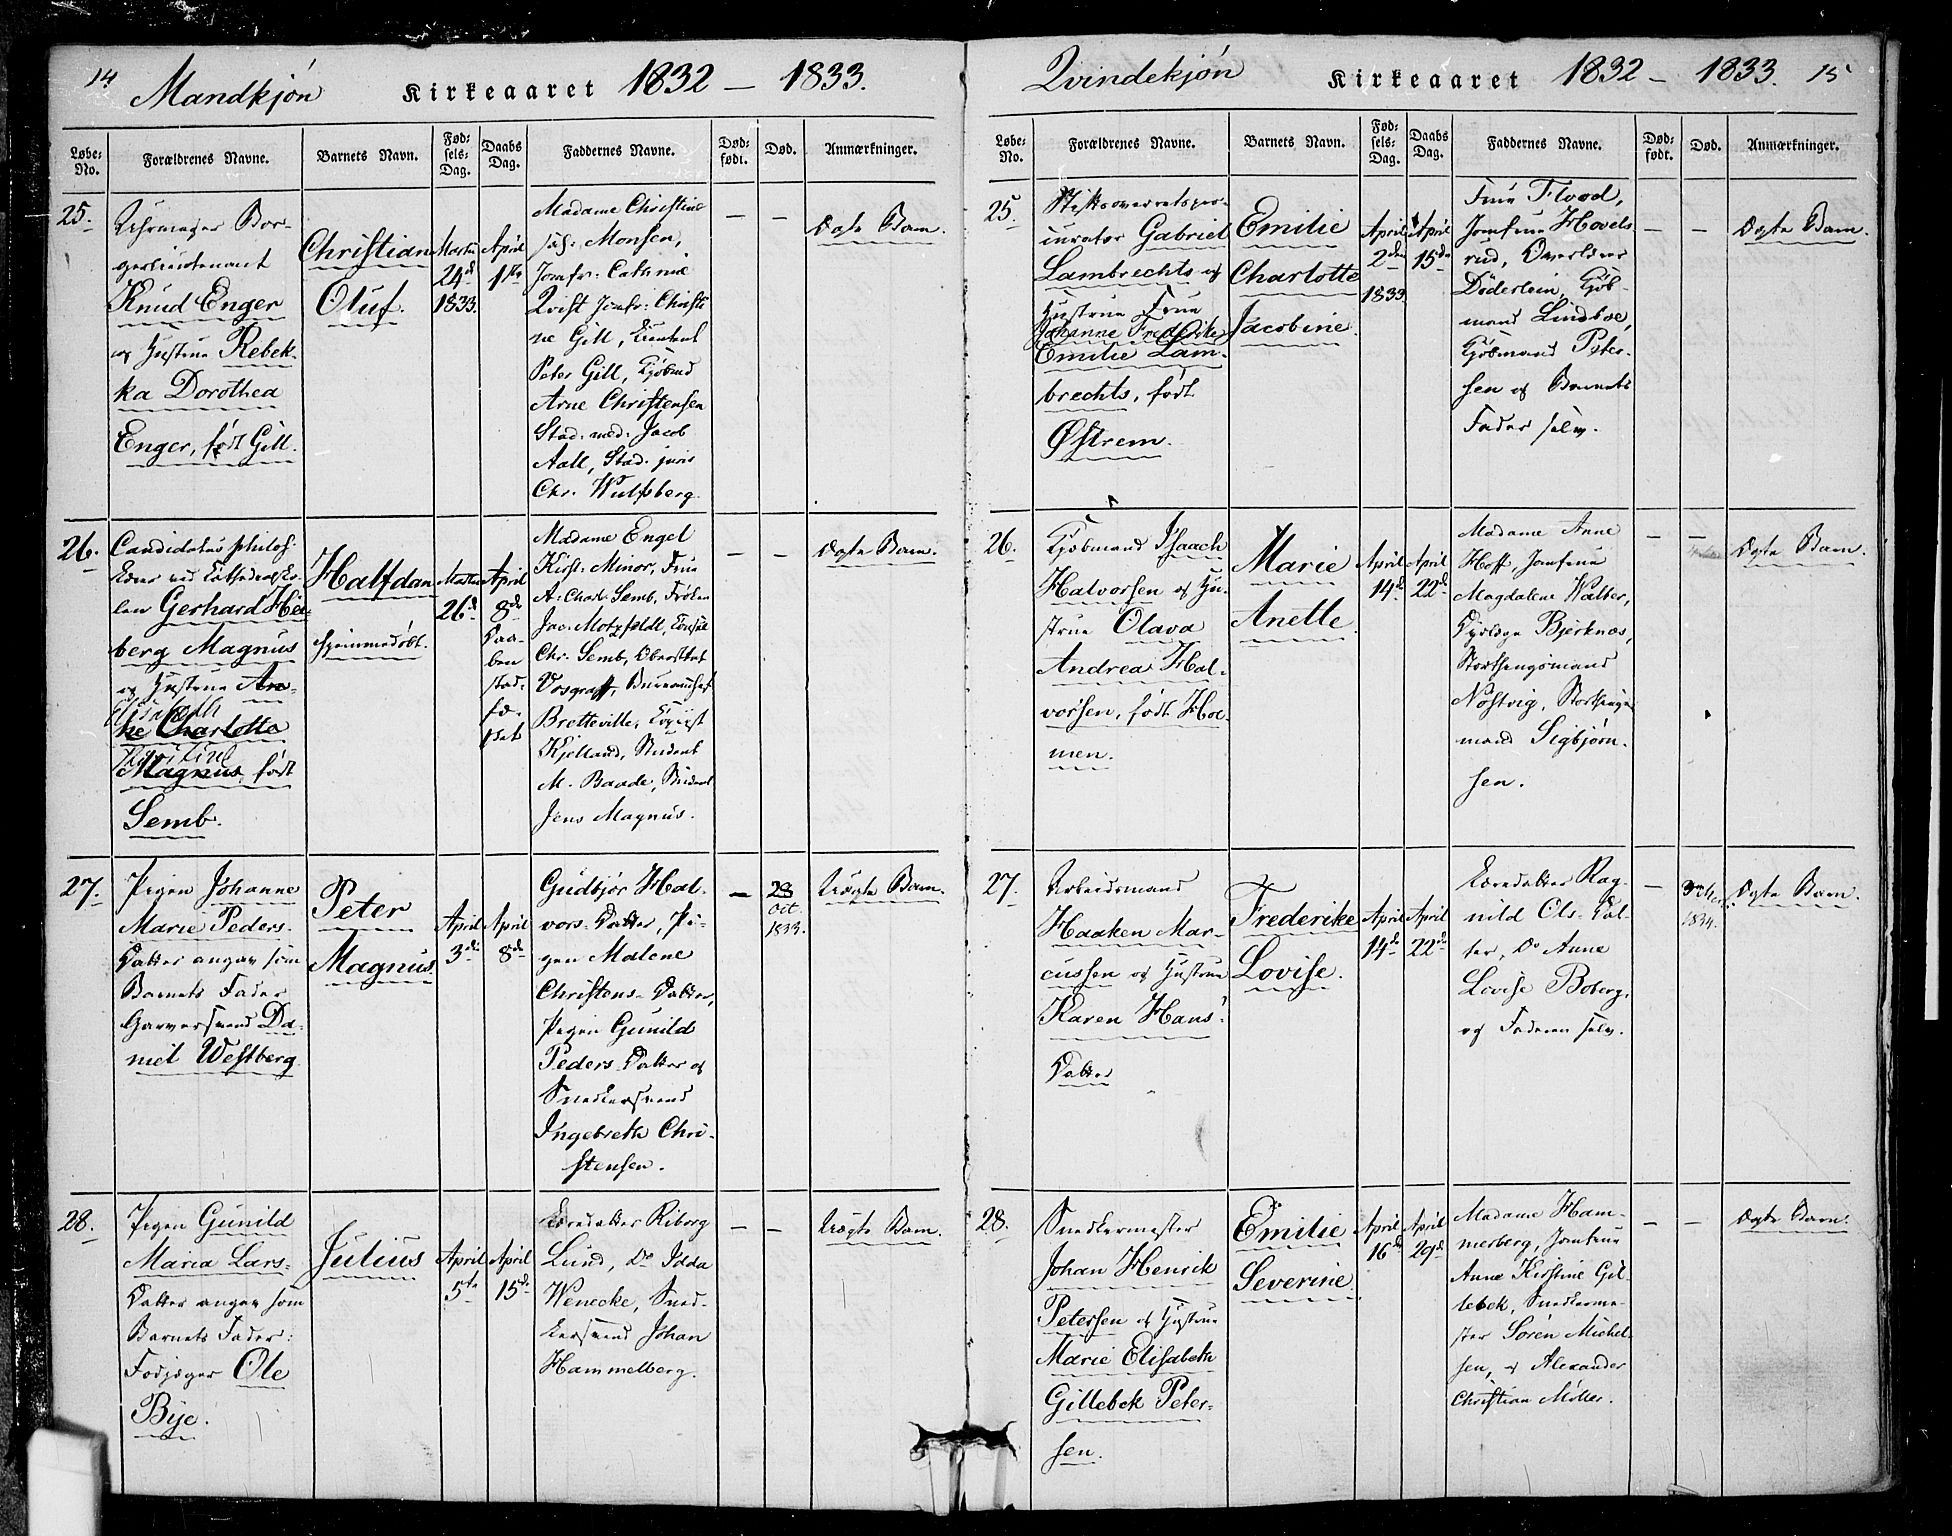 14 Mandkjøn Kirkeaaret 1832 – 1833.
Løbe-No. Forældrenes Navne. Barnets Navn. Fødsels-Dag. Daabs Dag. Faddernes Navne. Dødfødt. Død. Anmærkninger.
25.
Uhrmager Bor-
gerlieutenant
Knud Enger
og Hustrue Rebek-
ka Dorothea
Enger, født Gill.
Christian
Oluf.
Martii
24d
1833.
April
1ste
Madame Christine
Monsen,
Jomfr: Cathrine
Qvist Jomfr: Christi
ne Gill, Lieutent
Peter Gill, Kjøbmd
Arne Christensen
Stud: med: Jacob
Aall, Stud. juris
Chr. Wulfsberg.
– –
Ægte Barn.
26.
Candidatus philos.
Lærer ved Cathedralsko-
len Gerhard Hei-
berg Magnus
og Hustrue An-
Elisabeth
ne Charlotta
Magnus, født
Semb.
Halfdan
hjemmedøbt.
Martii
26d
April
8de
Daa-
ben
stad-
fæ-
stet
Madame Engel
Kirst: Minor, Frue
A: Charl: Semb, Frøken
Jac: Motzfeldt, Consul
Chr. Semb, Oberstltnt
Vosgraff, Bureauchef
Bretteville, Copiist
Kjelland, Student
M. Baade, Student
Jens Magnus.
– –
Ægte Barn.
27.
Pigen Johanne
Marie Peders-
Datter angav som
Barnets Fader
Garversvend Da-
niel Westberg.
Peter
Magnus.
April
3de
April
8de
Gudbjør Hal-
vors-Datter, Pi-
gen Malene
Christens-Datter,
Pigen Gunild
Peders-Datter og
Snedkersvend
Ingebreth Chri-
stensen.
–
28
Oct.
1833.
Uægte Barn.
28.
Pigen Gunild
Maria Lars-
Datter angav som
Barnets Fader:
Fodjæger Ole
Bye.
Julius
April
5te
April
15de
Læredatter Riborg
Lund, Do Idda
Wenecke, Sned-
kersvend Johan
Hammelberg.
– –
Uægte Barn.
Qvindekjøn Kirkeaaret 1832 – 1833. 15
Løbe-No. Forældrenes Navne. Barnets Navn. Fødsels-Dag. Daabs Dag. Faddernes Navne. Dødfødt. Død. Anmærkninger.
25.
Stiftsoverretspro-
curator Gabriel
Lambrechts og
Hustrue Frue
Johanne Frederike
Emilie Lam-
brechts, født
Østrem.
Emilie
Charlotte
Jacobine.
April
2den
1833.
April
15de
Frue Flood,
Jomfrue Hovels-
rud, Overlærer
Döderlein, Kjøb-
mand Lindboe,
Kjøbmand Peter-
sen og Barnets
Fader selv.
– –
Ægte Barn.
26.
Kjøbmand Isaach
Halvorsen og Hu-
strue Olava
Andrea Hal-
vorsen, født Hol-
men.
Marie
Anette.
April
14de
April
22de
Madame Anne
Hoff, Jomfrue
Magdalene Walter,
Bjerknæs,
Storthingsmand
Nøstvig, Storthings-
mand Sigbjørn-
sen.
– –
Ægte Barn.
27.
Arbeidsmand
Haaken Mar-
cussen og Hustrue
Karen Hans-
Datter
Frederike
Lovise.
April
14de
April
22de
Læredatter Rag-
nild Ols-Dat-
ter, Do Anne
Lovise Boberg,
og Faderen selv.
–
1834.
Ægte Barn.
28.
Snedkermester
Johan Henrik
Petersen og Hustrue
Marie Elisabeth
Gillebek Peter-
sen.
Emilie
Severine.
April
16de
April
29de
Madame Ham-
merberg, Jomfrue
Anne Kirstine Gil-
lebek, Snedkerme-
ster Søren Michel-
sen, og Alexander
Christian Møller.
– –
Ægte Barn.